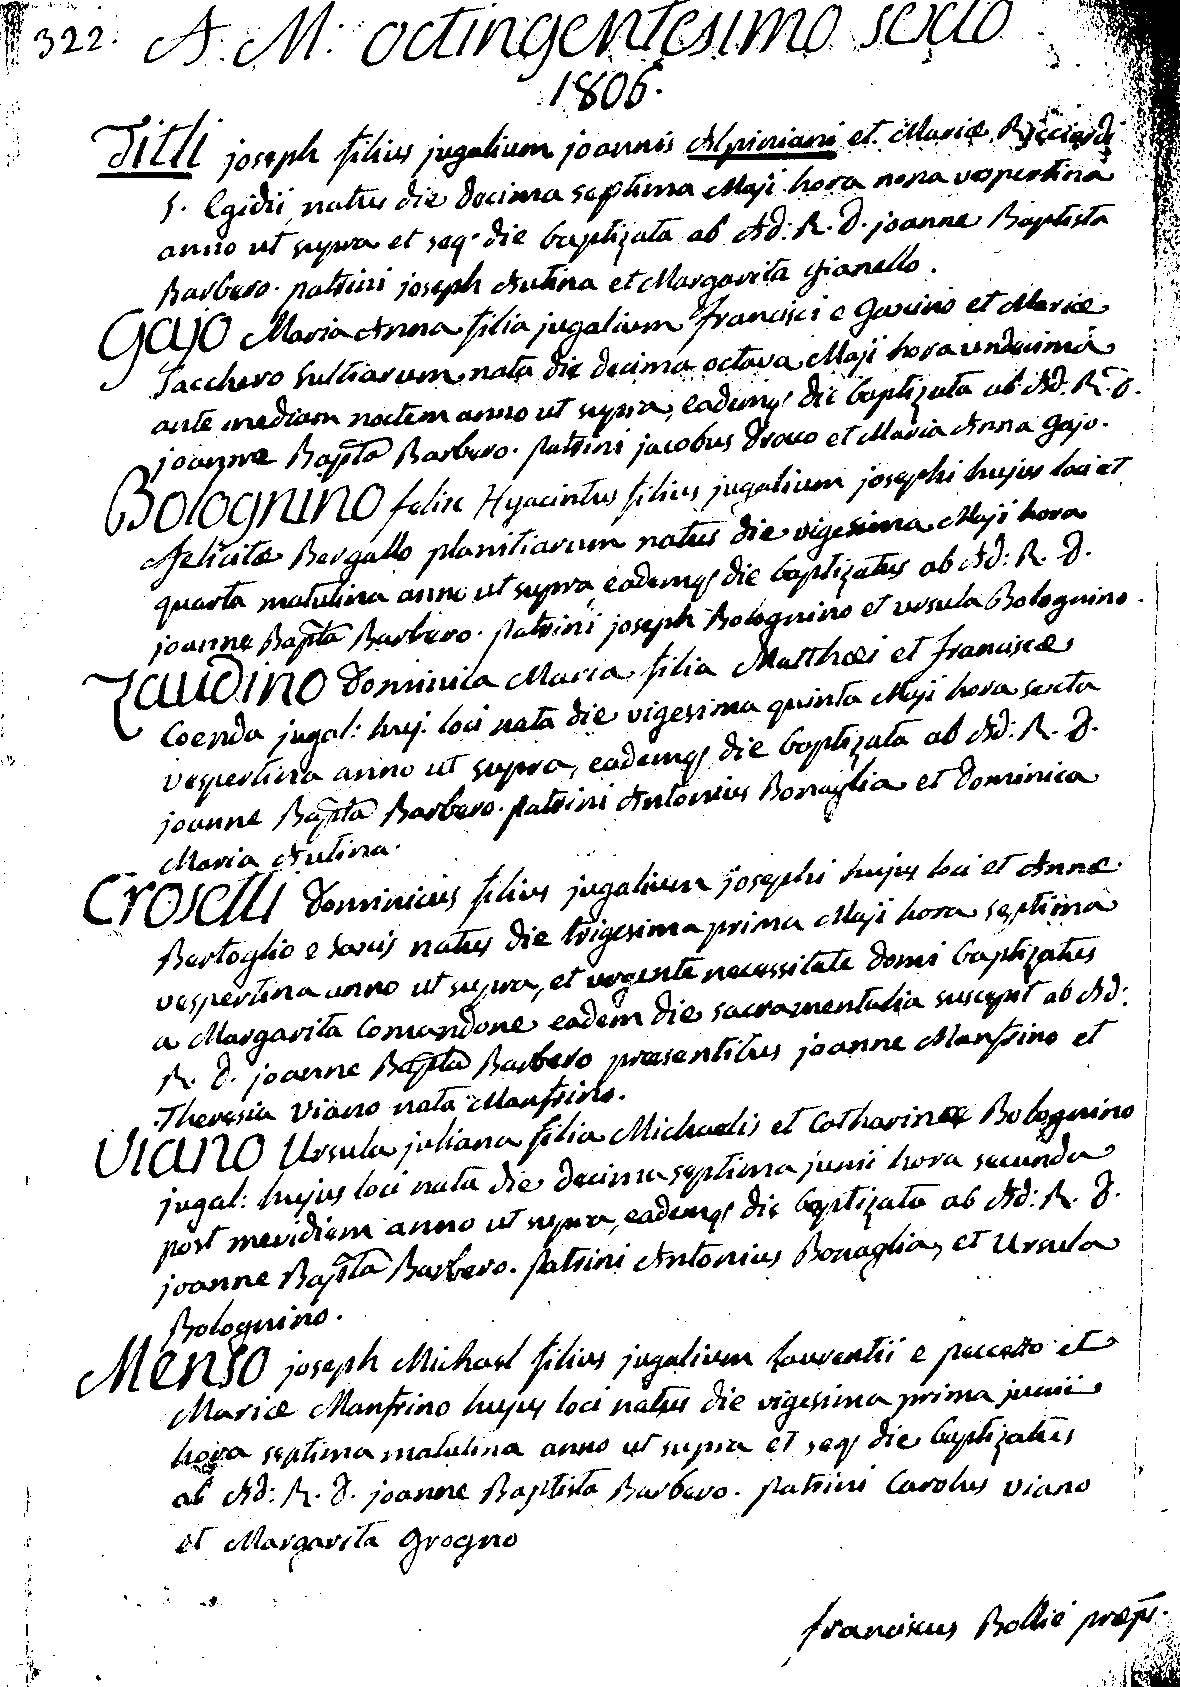 322. A. M: octingentesimo sexto
1806.
Titli joseph filius jugalium joannis Alpiniani et Mariæ Ricciardi
S. Egidii natus die decima septima Maji hora nona vespertina
anno ut supra et seq. die baptizata ab Ad: R. D. joanne Baptista
Barbero. patrini joseph Autina et Margarita Gianello.
Gajo Maria Anna filia jugalium francisci e Gavino et Mariæ
Sacchero Sultiarum nata die decima octava Maji hora undecima
ante mediam noctem anno ut supra, eademq; die baptizata ab Ad. R. D.
joanne Bapta Barbero. patrini jacobus Draco et Maria Anna Gajo.
Bolognino felix Hyacintus filius jugalium josephi hujus loci et
felicitæ Bergallo planitiarum natus die vigesima Maji hora
quarta matutina anno ut supra, eademq; die baptizatus ab Ad: R. D.
joanne Bapta Barbero. patrini joseph Bolognino et ursula Bolognino.
Zaudino Dominica Maria filia Matthæi et franciscæ
Coenda jugal: huj. loci nata die vigesima quinta Maji hora sexta
vespertina anno ut supra, eademq; die baptizata ab Ad: R. D.
joanne Bapta Barbero. patrini Antonius Bonaglia et Dominica
Maria Autina.
Crosetti Dominicus filius jugalium josephi hujus loci et Annæ
Bertoglio e natus die trigesima prima Maji hora septima
vespertina anno ut supra, et urgente necessitate domi baptizatus
a Margarita Comandone eadem die sacramentalia suscepit ab Ad:
R. D. joanne Bapta Barbero præsentibus joanne Manfrino et
Theresia Viano nata Manfrino.
Viano Ursula juliana filia Michaelis et Catharinæ Bolognino
jugal: hujus loci nata die decima septima junii hora secunda
post meridiem anno ut supra, eademq; die baptizata ab Ad: R. D.
joanne Bapta Barbero. patrini Antonius Bonaglia, et Ursula
Bolognino.
Menso joseph Michael filius jugalium Laurentii e peccetto et
Mariæ Manfrino hujus loci natus die vigesima prima junii
hora septima matutina anno ut supra et seq; die baptizatus
ab Ad: R. D. joanne Baptista Barbero. patrini Carolus Viano
et Margarita Grogno
franciscus Bollie præps.